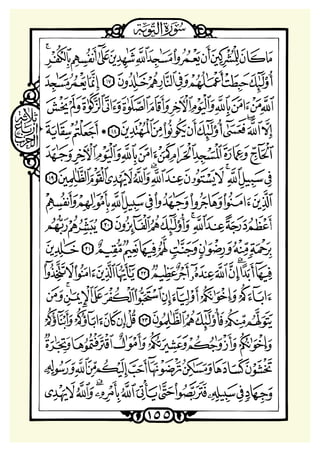 سُورَةُ التَّوْبَةِ
مَا كَانَ لِلْمُشْرِكِينَ أَنْ يَعْمُرُوا مَسَٰجِدَ اللَّهِ شَٰهِدِينَ عَلَىٰ أَنفُسِهِم بِالْكُفْرِ
أُوْلَٰئِكَ حَبِطَتْ أَعْمَٰلُهُمْ وَفِي النَّارِ هُمْ خَٰلِدُونَ ١٧ إِنَّمَا يَعْمُرُ مَسَٰجِدَ
اللَّهِ مَنْ ءَامَنَ بِاللَّهِ وَالْيَوْمِ الْءَاخِرِ وَأَقَامَ الصَّلَوٰةَ وَءَاتَى الزَّكَوٰةَ وَلَمْ يَخْشَ
إِلَّا اللَّهَ فَعَسَىٰ أُوْلَٰئِكَ أَنْ يَكُونُوا مِنَ الْمُهْتَدِينَ ١٨ أَجَعَلْتُمْ سِقَايَةَ
الْحَاجِّ وَعِمَارَةَ الْمَسْجِدِ الْحَرَامِ كَمَنْ ءَامَنَ بِاللَّهِ وَالْيَوْمِ الْءَاخِرِ وَجَٰهَدَ
فِي سَبِيلِ اللَّهِ لَا يَسْتَوُونَ عِندَ اللَّهِ وَاللَّهُ لَا يَهْدِي الْقَوْمَ الظَّٰلِمِينَ ١٩
الَّذِينَ ءَامَنُوا وَهَاجَرُوا وَجَٰهَدُوا فِي سَبِيلِ اللَّهِ بِأَمْوَٰلِهِمْ وَأَنفُسِهِمْ
أَعْظَمُ دَرَجَةً عِندَ اللَّهِ وَأُوْلَٰئِكَ هُمُ الْفَائِزُونَ ٢٠ يُبَشِّرُهُمْ رَبُّهُم
بِرَحْمَةٍ مِّنْهُ وَرِضْوَٰنٍ وَجَنَّٰتٍ لَّهُمْ فِيهَا نَعِيمٌ مُّقِيمٌ ٢١ خَٰلِدِينَ
فِيهَا أَبَدًا إِنَّ اللَّهَ عِندَهُ أَجْرٌ عَظِيمٌ ٢٢ يَٰأَيُّهَا الَّذِينَ ءَامَنُوا لَا تَتَّخِذُوا
ءَابَاءَكُمْ وَإِخْوَٰنَكُمْ أَوْلِيَاءَ إِنِ اسْتَحَبُّوا الْكُفْرَ عَلَى الْإِيمَٰنِ وَمَن
يَتَوَلَّهُم مِّنكُمْ فَأُوْلَٰئِكَ هُمُ الظَّٰلِمُونَ ٢٣ قُلْ إِن كَانَ ءَابَاؤُكُمْ وَأَبْنَاؤُكُمْ
وَإِخْوَٰنُكُمْ وَأَزْوَٰجُكُمْ وَعَشِيرَتُكُمْ وَأَمْوَٰلٌ اقْتَرَفْتُمُوهَا وَتِجَٰرَةٌ
تَخْشَوْنَ كَسَادَهَا وَمَسَٰكِنُ تَرْضَوْنَهَا أَحَبَّ إِلَيْكُم مِّنَ اللَّهِ وَرَسُولِهِ
وَجِهَادٍ فِي سَبِيلِهِ فَتَرَبَّصُوا حَتَّىٰ يَأْتِيَ اللَّهُ بِأَمْرِهِ وَاللَّهُ لَا يَهْدِي
ثلاثة
أرباع
الحزب
١٥٥